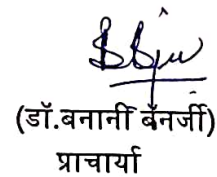 (डॉ.बनानी बॅनर्जी)
प्राचार्या